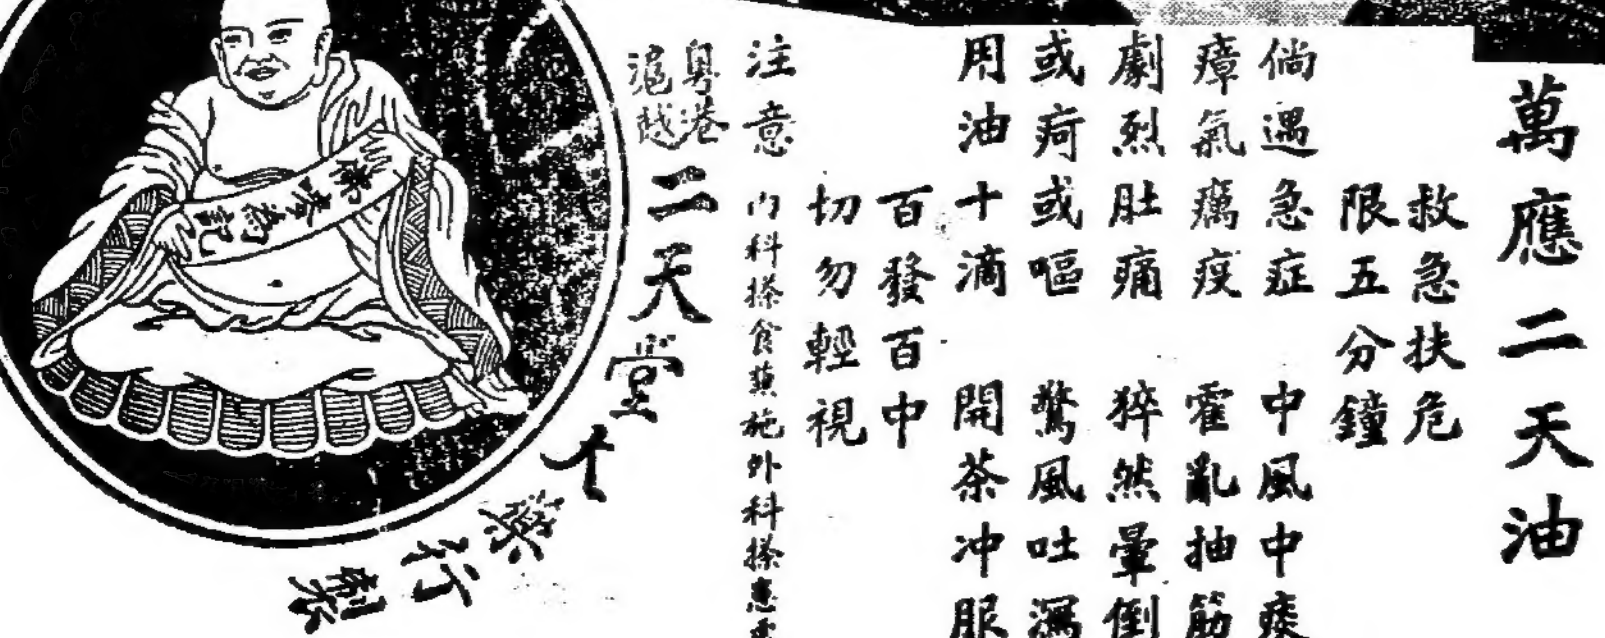 萬應二天油
救急扶危
限五分鐘
倘遇急症 中風中痰
瘴氣癘疫 霍亂抽筋
劇烈肚痛 猝然暈倒
或疴或嘔 驚風吐瀉
用油十滴 開茶冲服
百發百中
切勿輕視
注意 內科搽食兼施外科搽患處
粤港
滬越
二天堂大藥行製
佛嘜為記